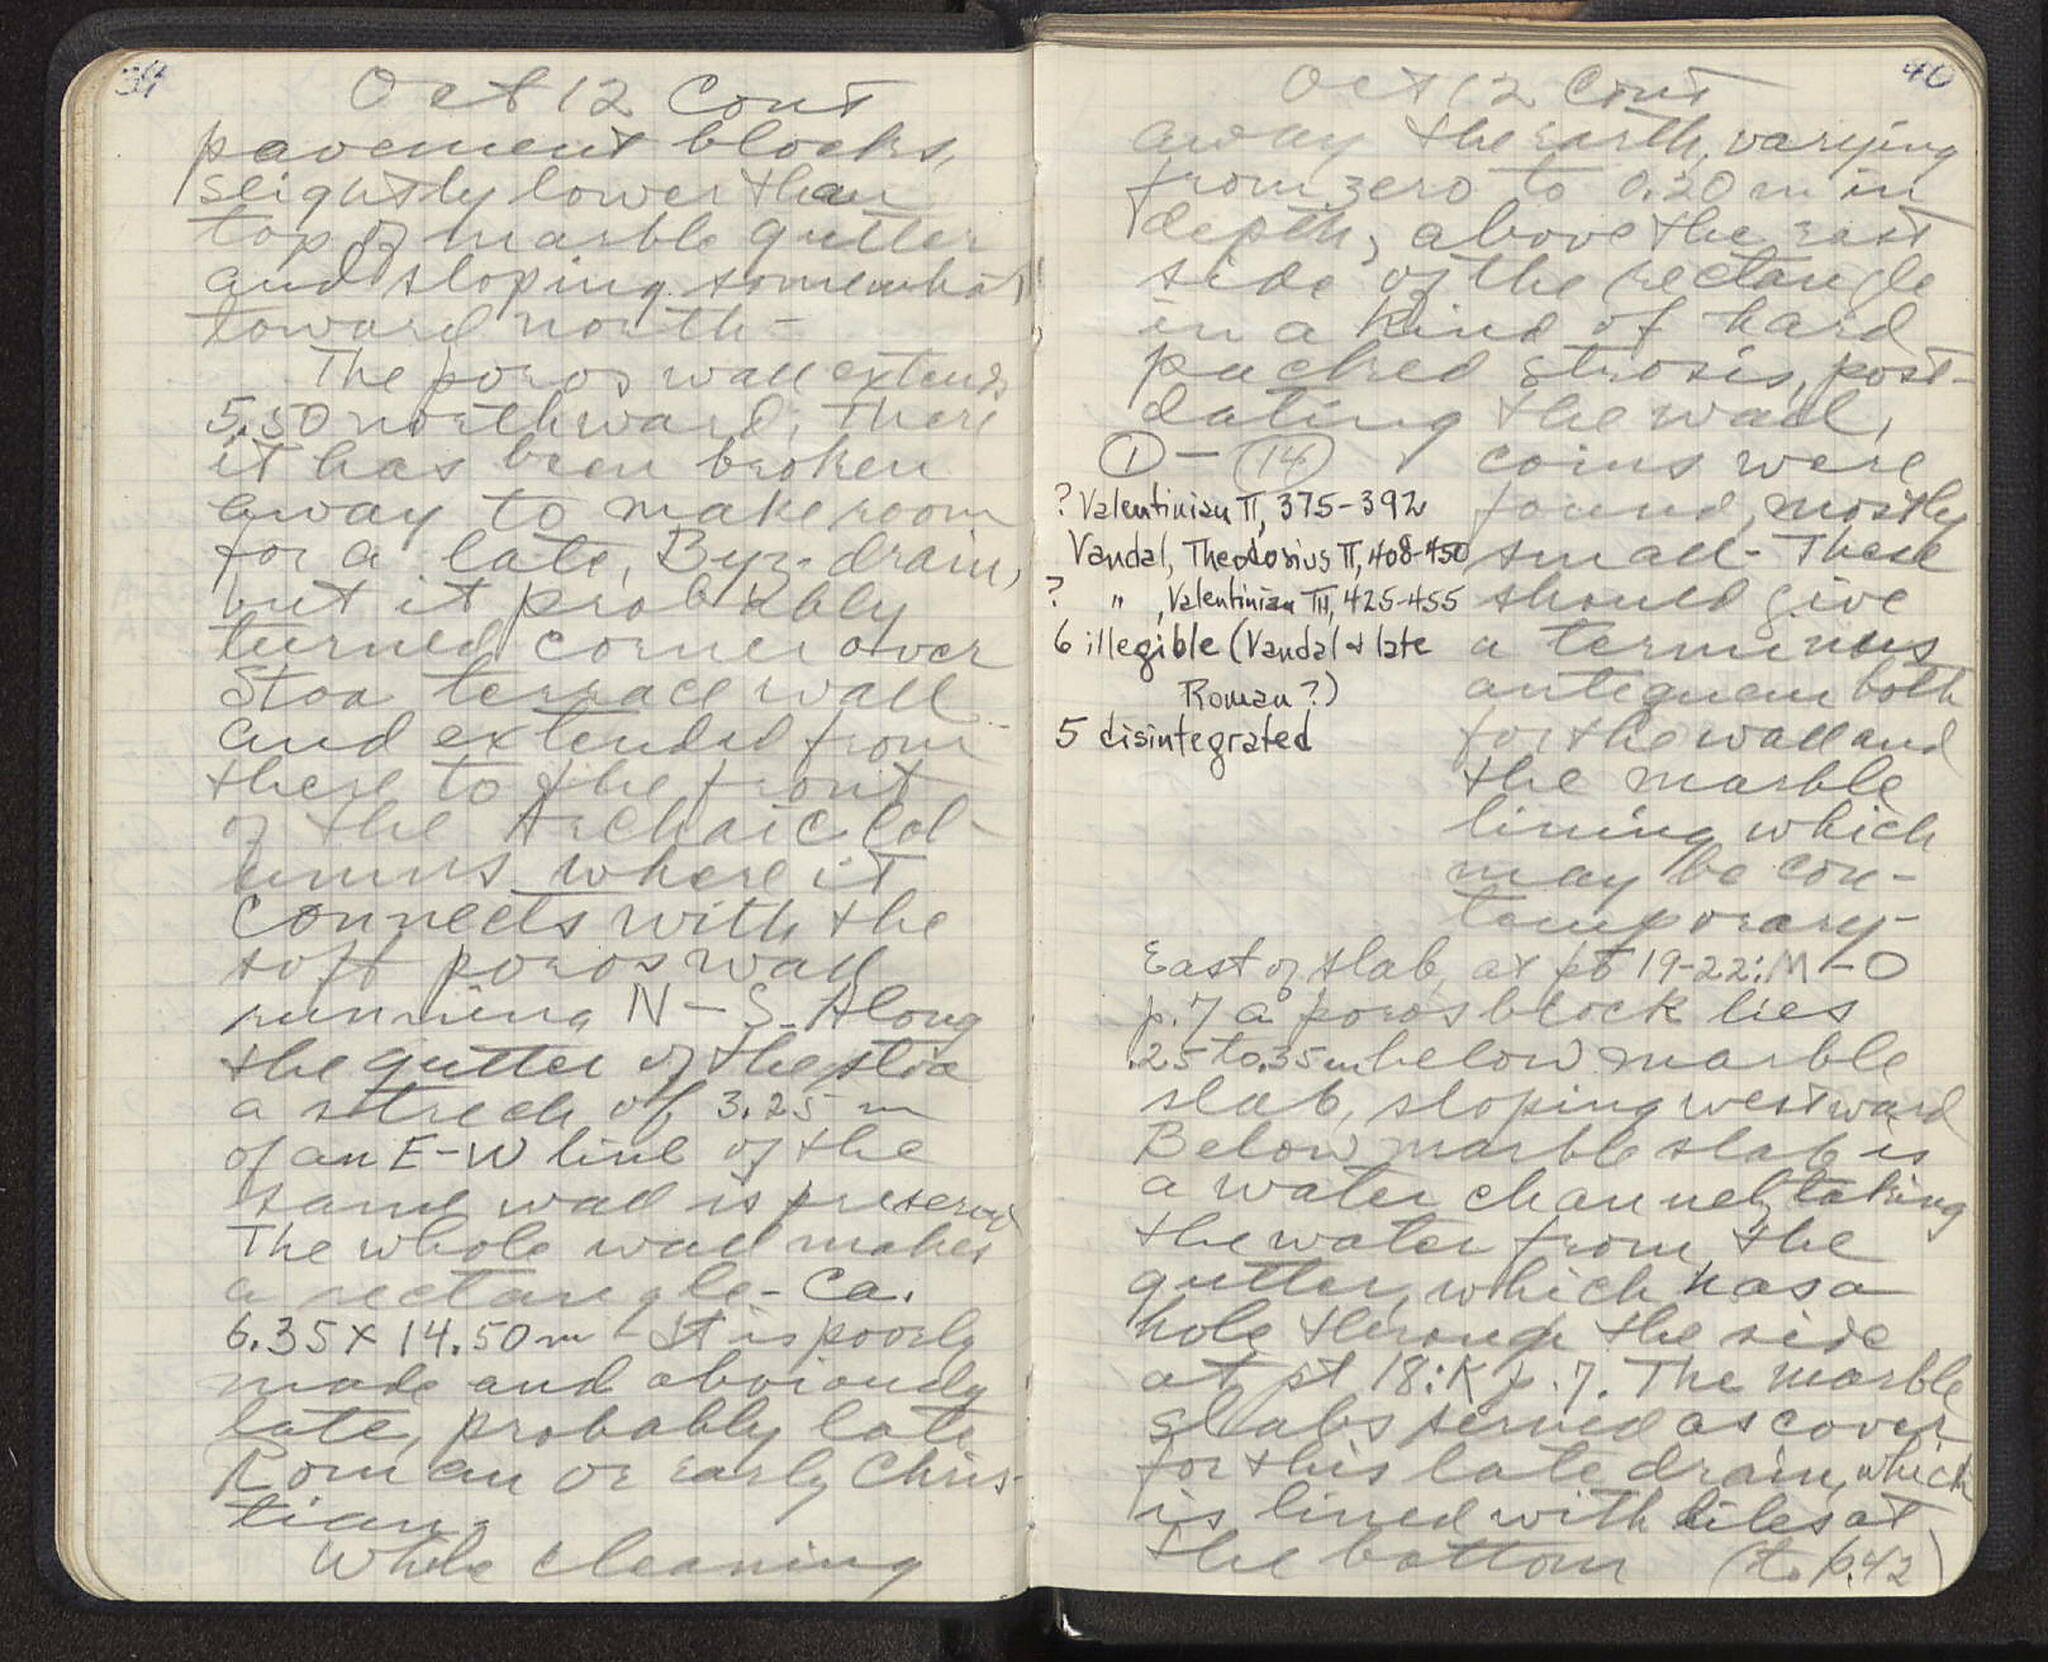 39
Oct 12 Cont
pavement blocks,
slightly lower than
top of marble gutter
and sloping somewhat
toward north-
The poros wall extends
5.50 northward; There
it has been broken
away to make room
for a late, Byz. drain,
but it probably
turned corner over
Stoa terrace wall
and extended from
there to the front
of the Archaic Col-
umns where it
connects with the
soft poros wall
running N-S. Along
the gutter of the stoa
a strech of 3.25 m
of an E-W line of the
same wall is preserved
The whole wall makes
a rectangle - ca.
6.35 x 14.50 m - It is poorly
made and obviously
late, probably late
Roman or early Chris-
tian.
While cleaning
40
Oct 12 Cont
away the earth, varying
from zero to 0.20 m in
depth, above the east
side of the rectangle
in a kind of hard
packed strosis, post-
dating the wall,
① - ⑭ coins were
? Valentinian II, 375-392 found, mostly
Vandal, Theodosius II, 408-450 small - These
? " , Valentinian III, 425-455 should give
6 illegible (Vandal & late a terminus
Roman?) antequem both
5 disintegrated for the wall and
the marble
lining which
may be con-
temporary-
East of slab, at pt 19-22:M-O
p.7 a poros block lies
.25 to .35m below marble
slab, sloping westward
Below marble slab is
a water channel, taking
the water from the
gutter, which has a
hole through the side
at pt 18:K p.7. The marble
slabs served as cover
for this late drain, which
is lined with tiles at
the bottom (to p.42)